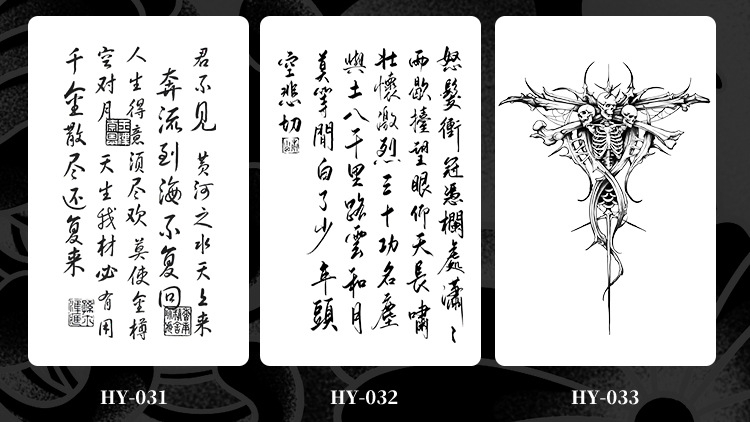 君不见 黄河之水天上来
奔流到海不复回
人生得意须尽欢 莫使金樽
空对月 天生我材必有用
千金散尽还复来
HY-031
怒髮衝冠憑欄處瀟々
雨歇擡望眼仰天長嘯
壯懷激烈三十功名塵
與土八千里路雲和月
莫等閒白了少年頭
空悲切
HY-032
HY-033